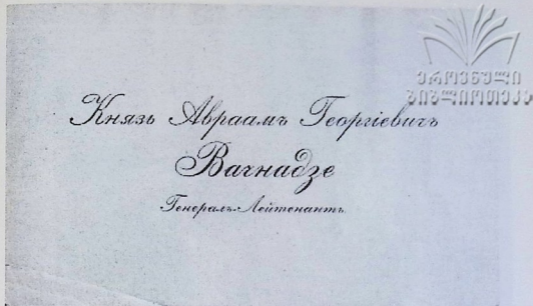 ეროვნული
ბიბლიოთეკა
Князь Авраамъ Георгіевичъ
Вачнадзе
Генералъ-Лейтенантъ